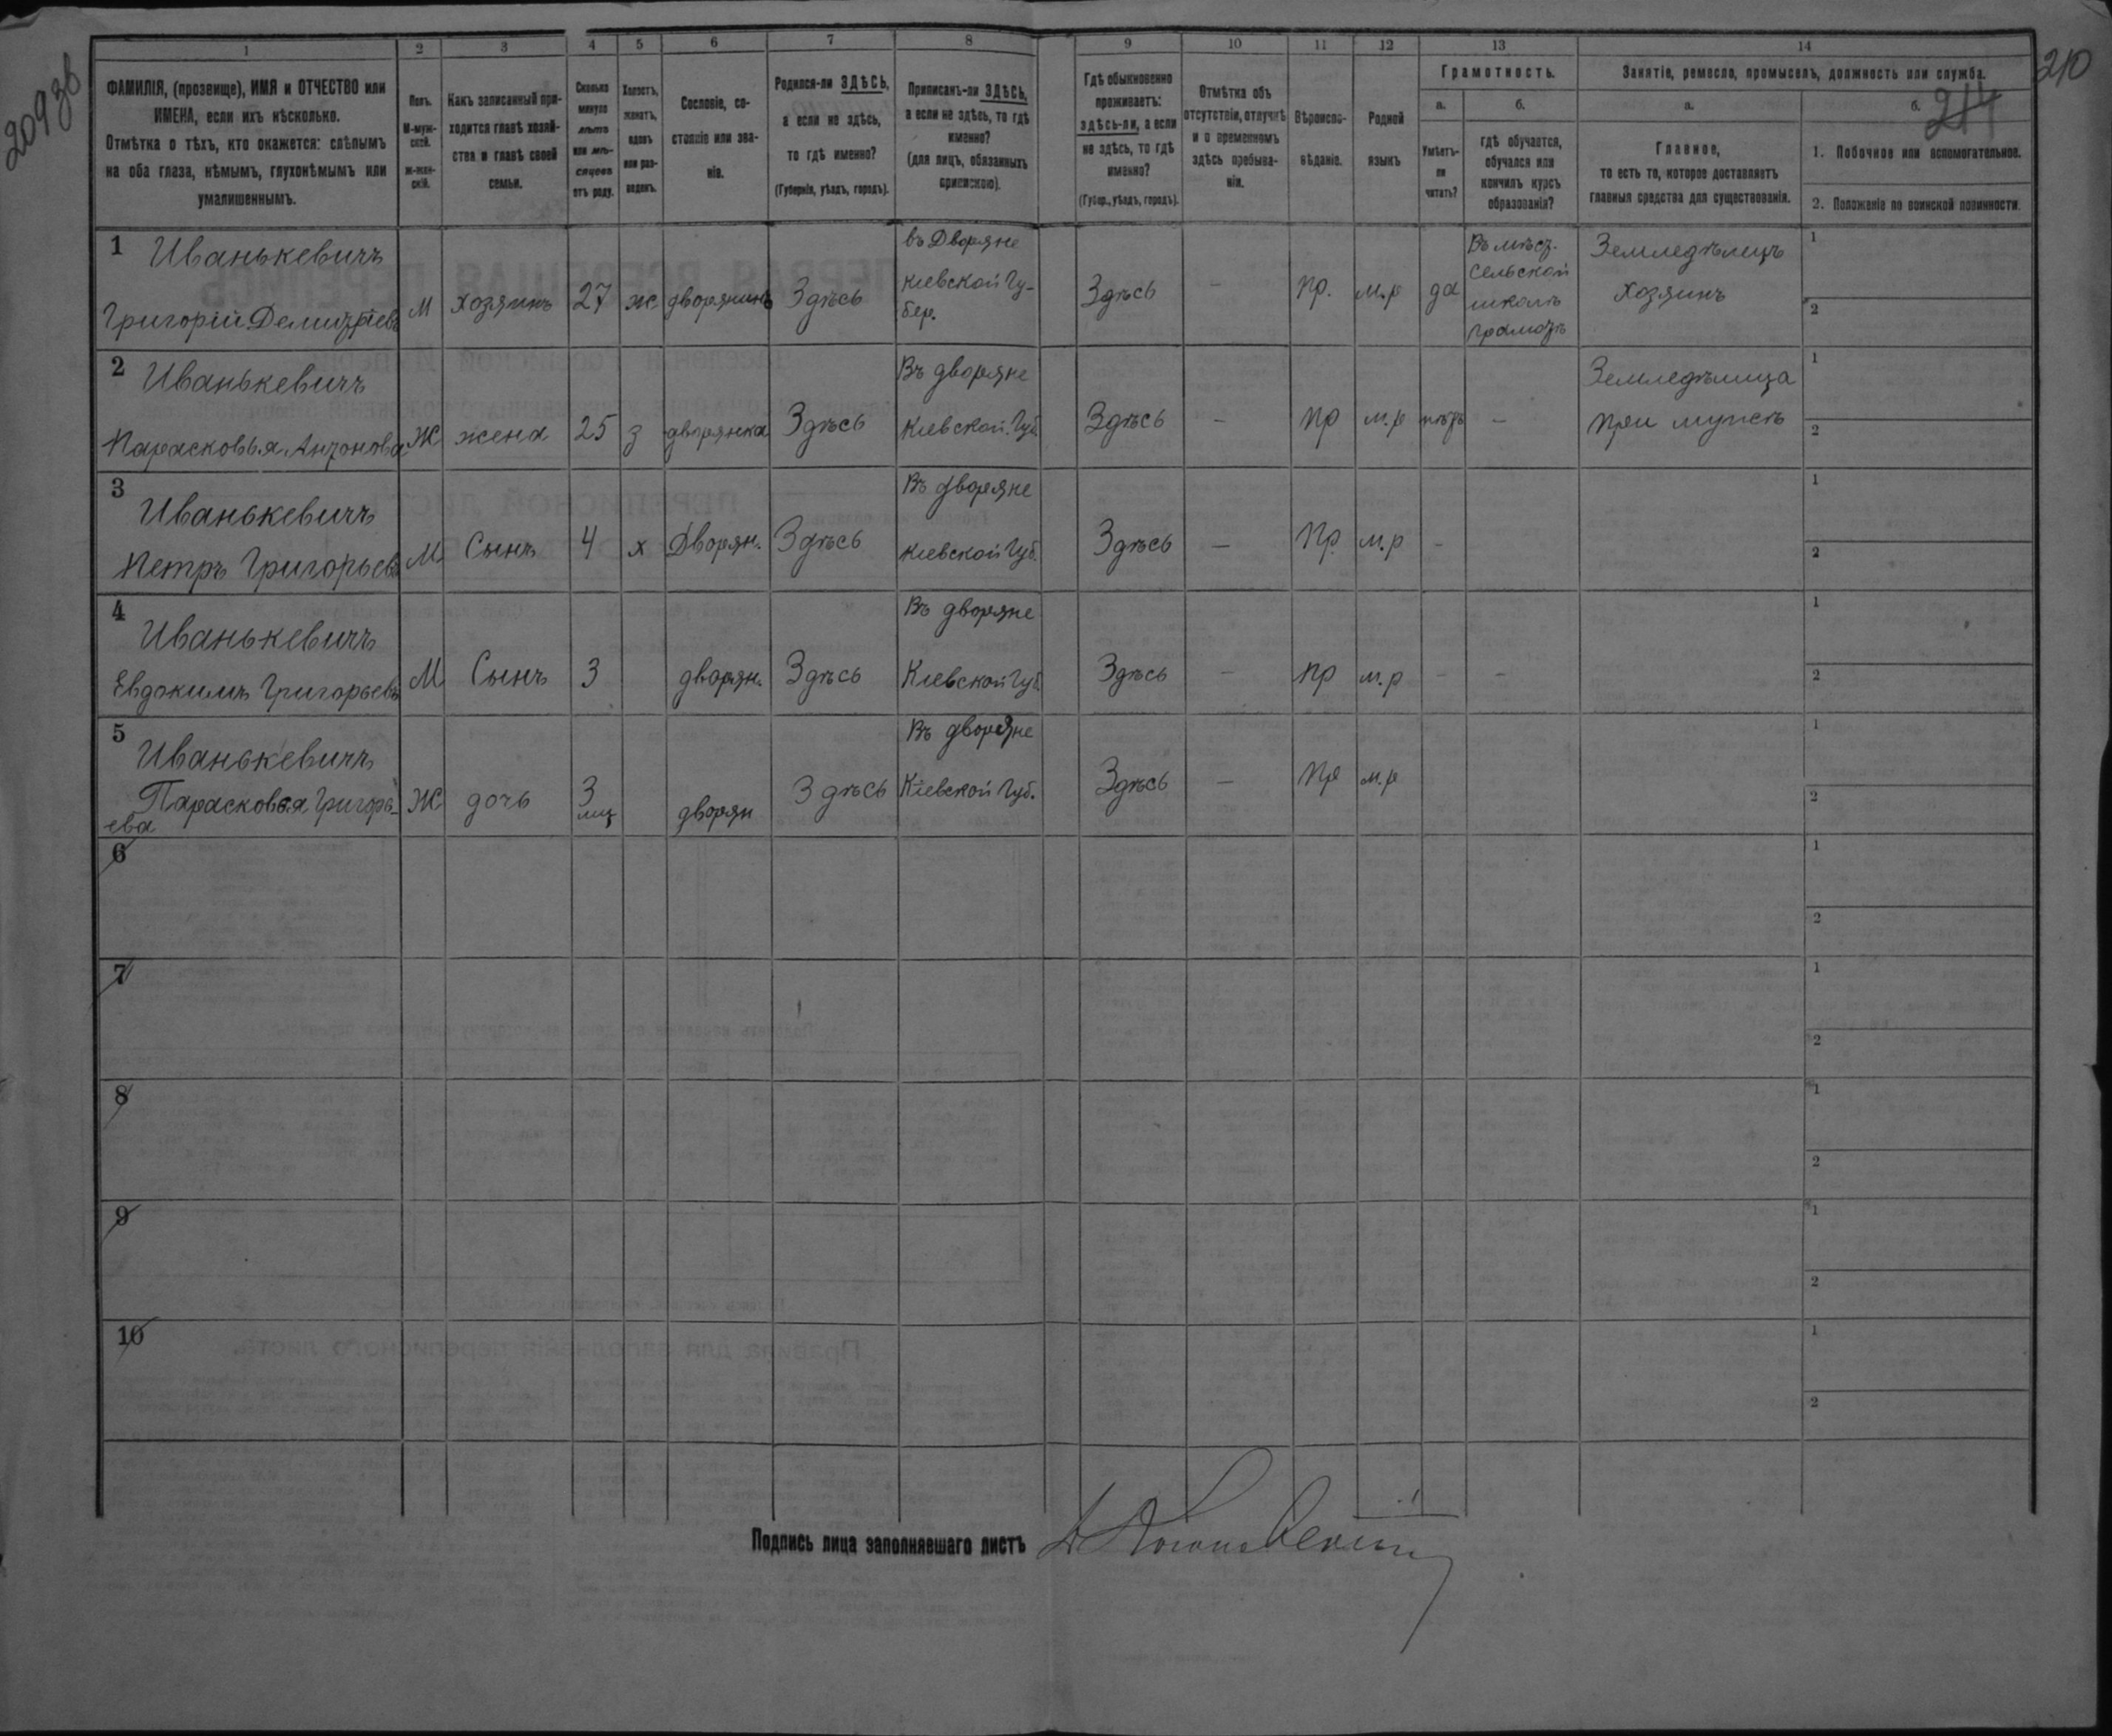 209 зв
210
214
1 2 3 4 5 6 7 8 9 10 11 12 13 14
ФАМИЛІЯ, (прозвище), ИМЯ и ОТЧЕСТВО или
ИМЕНА, если ихъ нѣсколько.
Отмѣтка о тѣхъ, кто окажется: слѣпымъ
на оба глаза, нѣмымъ, глухонѣмымъ или
умалишеннымъ.
Полъ.
М-муж-
ской.
ж-жен-
скій.
Какъ записанный при-
ходится главѣ хозяй-
ства и главѣ своей
семьи.
Сколько
минуло
лѣтъ
или мѣ-
сяцевъ
отъ роду.
Холостъ,
женатъ,
вдовъ
или раз-
веденъ.
Сословіе, со-
стояніе или зва-
ніе.
Родился-ли ЗДѢСЬ,
а если не здѣсь,
то гдѣ именно?
(Губернія, уѣздъ, городъ).
Приписанъ-ли ЗДѢСЬ,
а если не здѣсь, то гдѣ
именно?
(для лицъ, обязанныхъ
припискою).
Гдѣ обыкновенно
проживаетъ:
здѣсь-ли, а если
не здѣсь, то гдѣ
именно?
(Губер., уѣздъ, городъ).
Отмѣтка объ
отсутствіи, отлучкѣ
и о временномъ
здѣсь пребыва-
ніи.
Вѣроиспо-
вѣданіе.
Родной
языкъ
Грамотность.
а.
Умѣетъ-
ли
читать?
б.
гдѣ обучается,
обучался или
кончилъ курсъ
образованія?
Занятіе, ремесло, промыселъ, должность или служба.
а.
Главное,
то есть то, которое доставляетъ
главныя средства для существованія.
б.
1. Побочное или вспомогательное.
2. Положеніе по воинской повинности.
1 Иванькевичъ
Григорій Демитріевъ
М
хозяинъ
27
ж
дворянинъ
Здѣсь
въ Дворяне
Кіевской Гу-
бер.
Здѣсь
-
пр.
м.р
да
Въ мѣст.
сельской
школѣ
грамотѣ
Земледѣлецъ
хозяинъ
1
2
2 Иванькевичъ
Парасковья Антонова
Ж
жена
25
з
дворянка
Здѣсь
Въ дворяне
Кіевской Губ.
Здѣсь
-
пр
м.р
нѣтъ
-
Земледѣлица
при мужѣ
1
2
3
Иванькевичъ
Петръ Григорьевъ
М
Сынъ
4
х
Дворян.
Здѣсь
Въ дворяне
Кіевской Губ.
Здѣсь
-
Пр
м.р
-
1
2
4
Иванькевичъ
Евдокимъ Григорьевъ
М
Сынъ
3
дворян.
Здѣсь
Въ дворяне
Кіевской Губ.
Здѣсь
-
пр
м.р
-
-
1
2
5
Иванькевичъ
Парасковья Григорь-
ева
Ж
дочь
3
мц
дворян
Здѣсь
Въ дворяне
Кіевской Губ.
Здѣсь
-
пр
м.р
1
2
6
1
2
7
1
2
8
1
2
9
1
2
10
1
2
Подпись лица заполнявшаго листъ